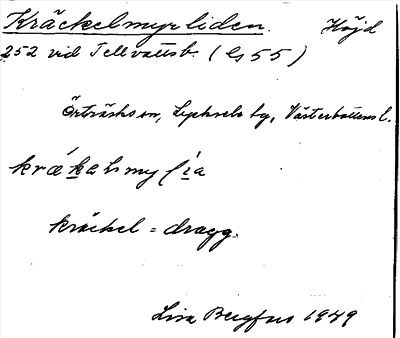 Kräckelmyrliden. Höjd
252 vid Tellvattsb. (G 55)
Örträsks sn, Lycksele tg, Västerbottens l.
kräckel = dragg.
Lisa Bergfors 1949